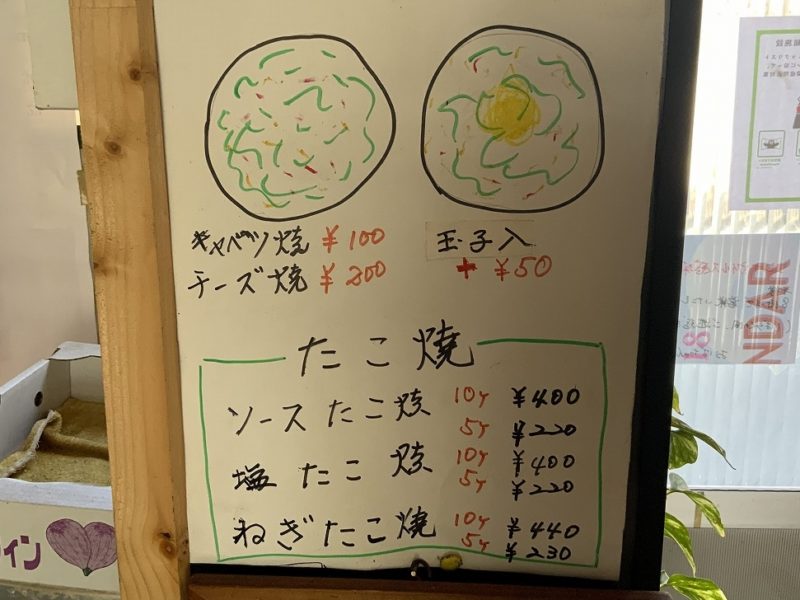 キャベツ焼 ¥100
チーズ焼 ¥200
玉子入
+ ¥50
たこ焼
ソースたこ焼 10ケ ¥400
5ケ ¥220
塩たこ焼 10ケ ¥400
5ケ ¥220
ねぎたこ焼 10ケ ¥440
5ケ ¥230
イン
NDAR
18